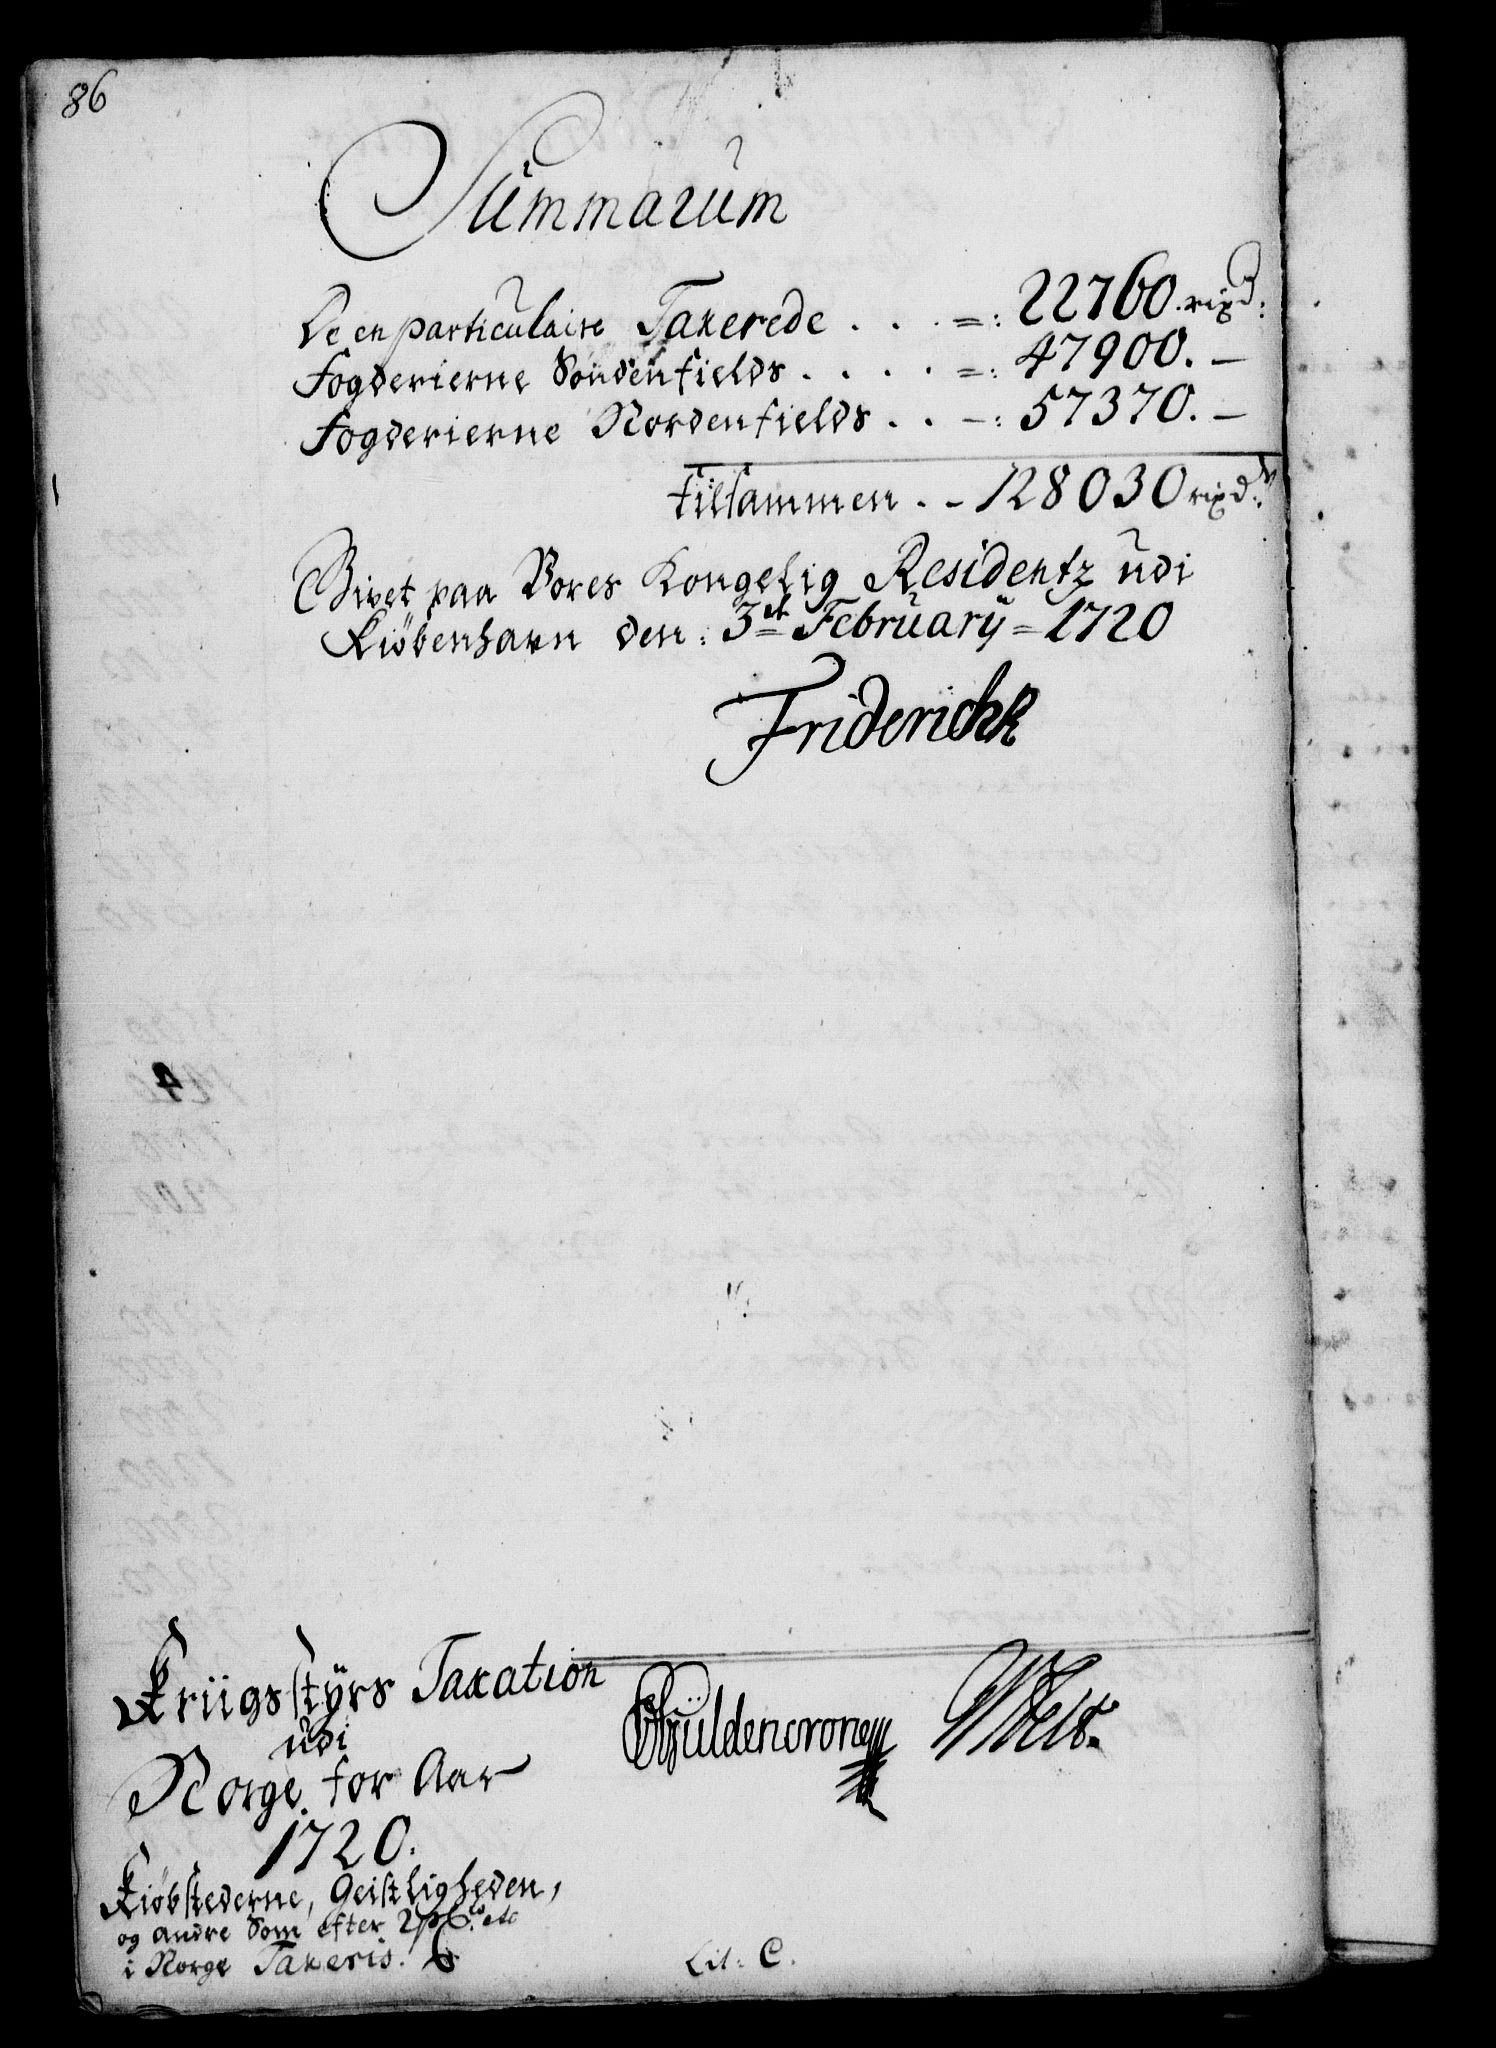 86
Summarum
De en particulaire Taxerede . . . =: 22760. rixd:
Fogderierne Søndenfields . . . . =: 47900. –
Fogderierne Nordenfields . . –: 57370. –
tilsammen . – 128030 rixd:
Givet paa Vores Kongelig Residentz udi
Kiøbenhavn den: 3de February = 1720
Friderich R
Kriigs Styrs Taxation
udi
Norge for Aar
1720.
Kiøbstederne, Geistligheden,
og andre Som efter
i Norge Taxeris.
Güldencrone
Lit: C.
4